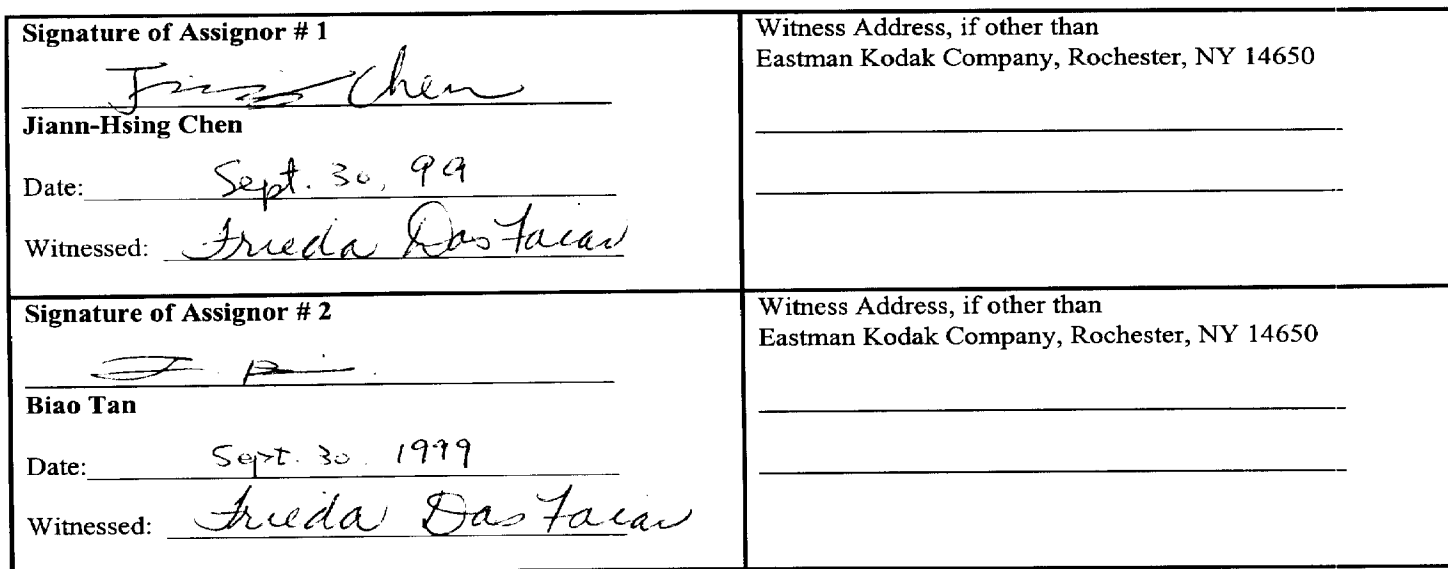 Signature of Assignor # 1
Chen
Jiann-Hsing Chen
Date: Sept. 30, 99
Witnessed: Frieda Das
Witness Address, if other than
Eastman Kodak Company, Rochester, NY 14650
Signature of Assignor # 2
Biao Tan
Date: Sept. 30. 1999
Witnessed: Frieda Das
Witness Address, if other than
Eastman Kodak Company, Rochester, NY 14650